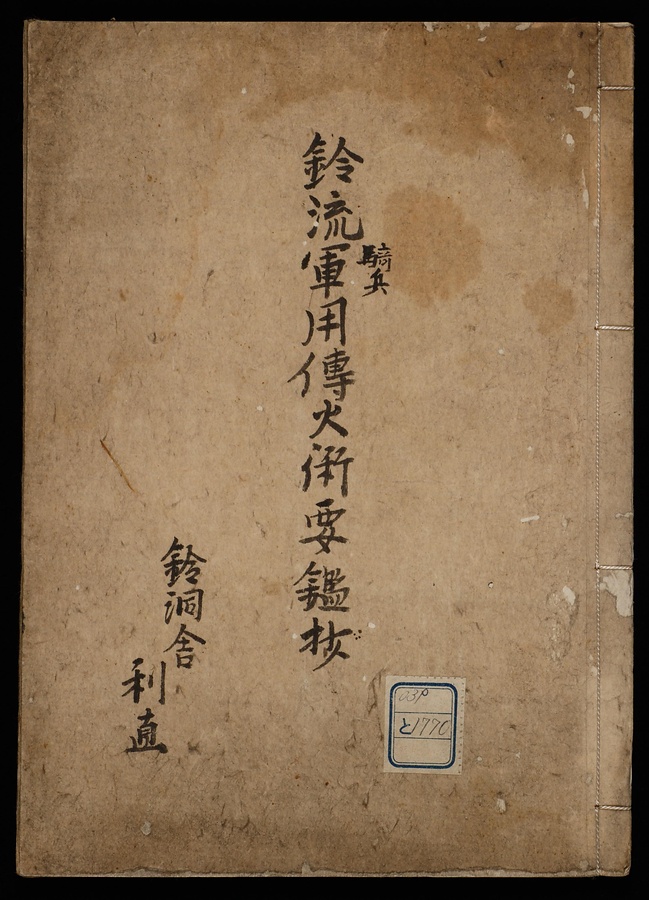 鈴流軍用傳火術要鑑抜
騎兵
鈴洞舎
利直
03P
と1770